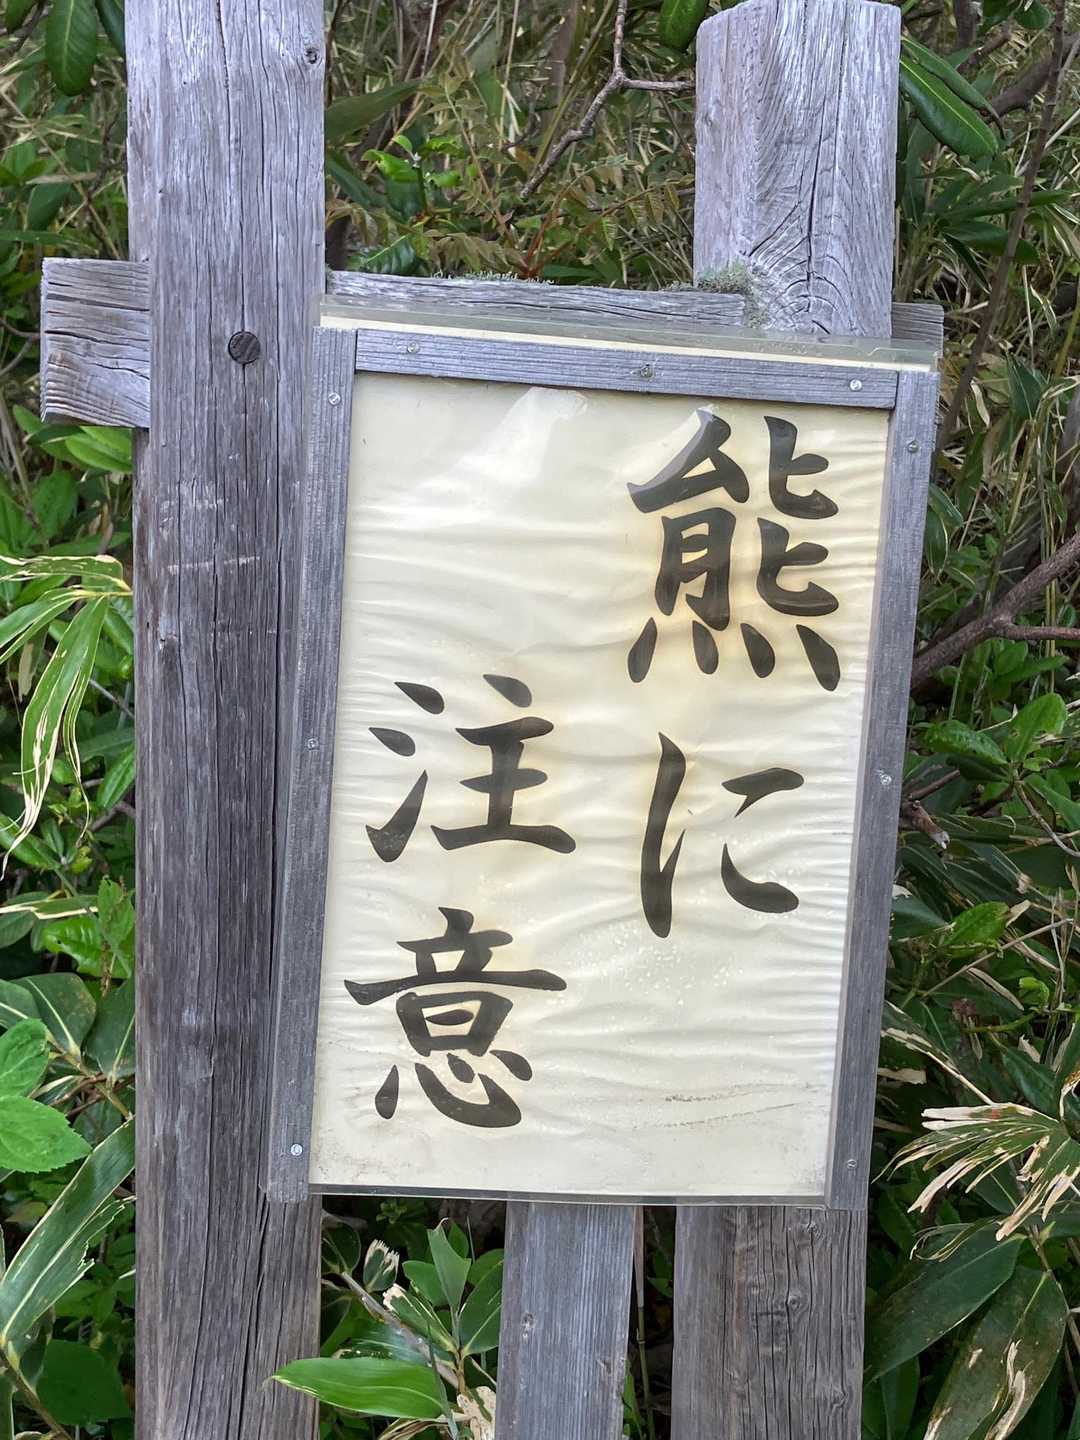 熊に
注意